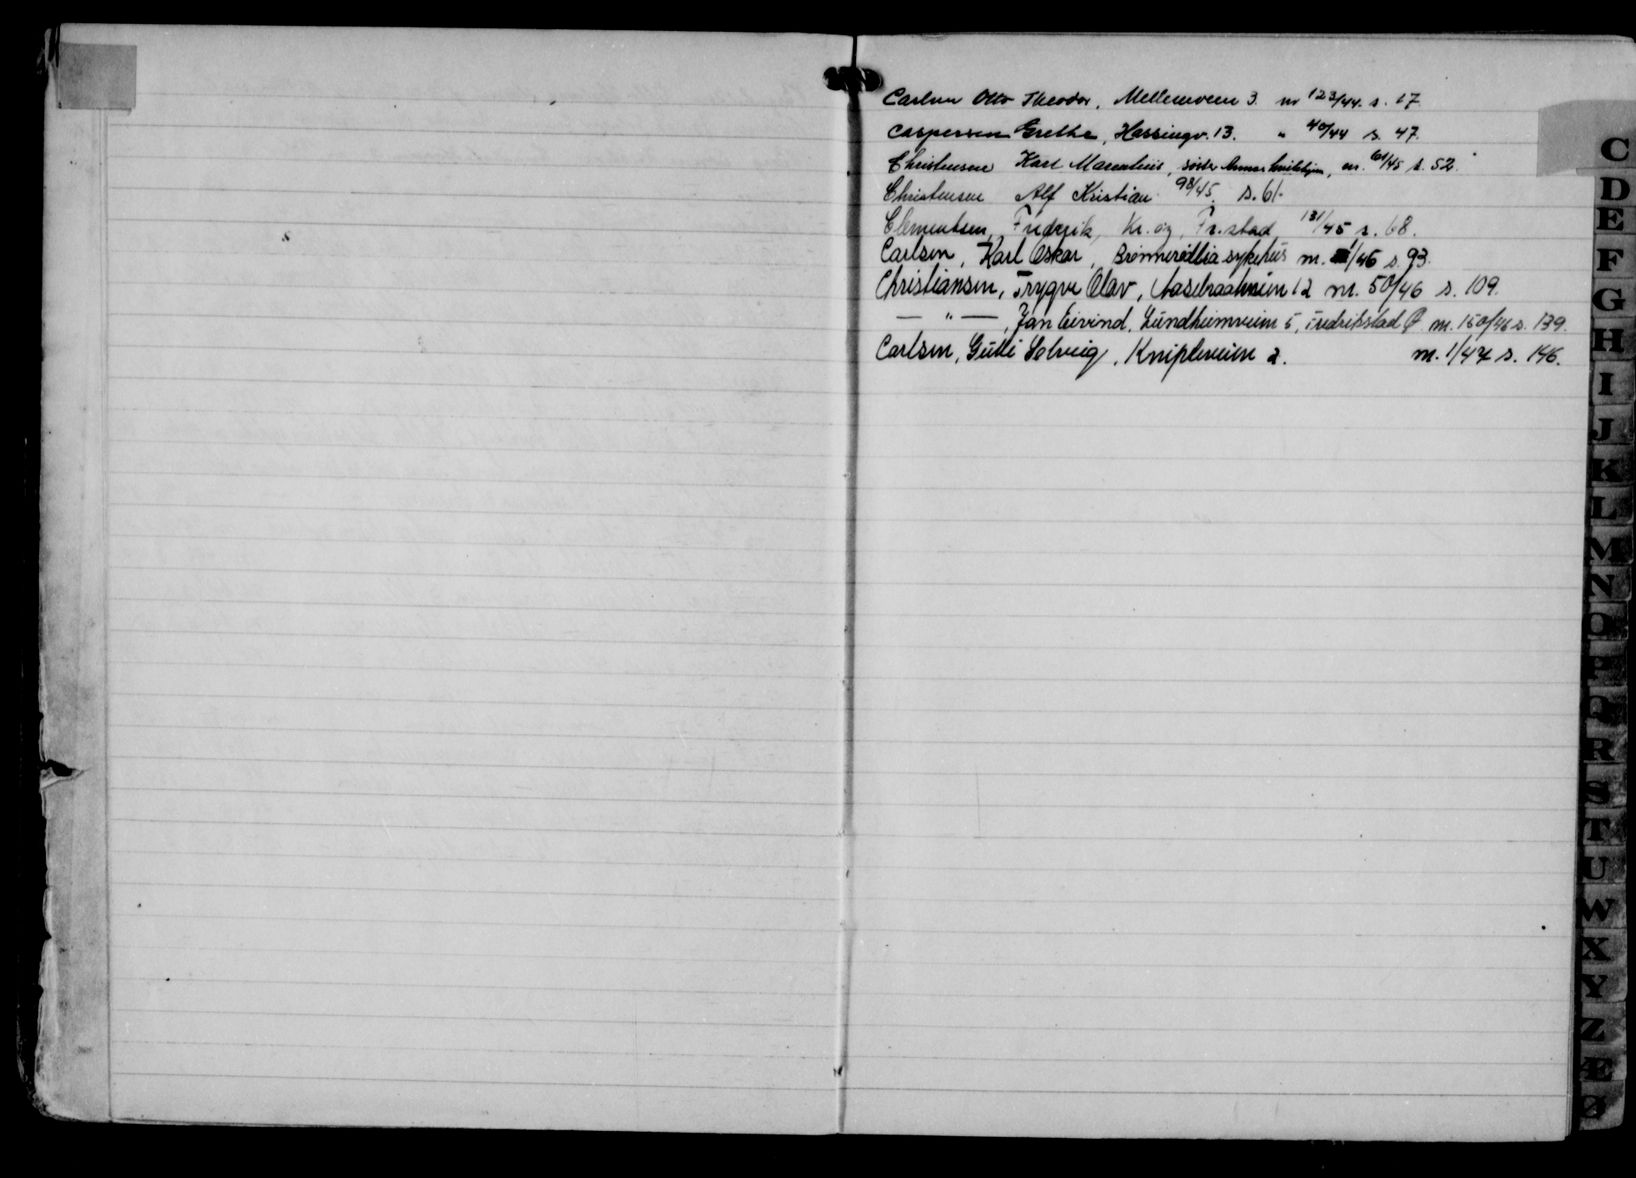 Carlsen Otto Theodor, Mellemveien 3. nr 123/44. s. 17
Caspersen Grethe, Hassingv. 13. " 40/44 s. 47.
Christensen Karl Marentius, søster Annas hvilehjem, nr. 61/45 s. 52.
Christensen Alf Kristian 98/45. s. 61.
Clementsen, Fredrik, Kr. øy, Fr.stad 131/45 s. 68.
Carlsen, Karl Oskar, sykehus nr. 1/46 s. 93.
Christiansen, Trygve Olav, 12 nr. 50/46 s. 109.
— " —, Jan Eivind, Lundheimveien 5, Fredrikstad Ø. nr. 150/46 s. 139.
Carlsen, Gulli Solveig, Knipleveien 2. nr. 1/47 s. 146.
C
D
E
F
G
H
I
J
K
L
M
N
O
P
Q
R
S
T
U
W
X
Y
Z
Æ
Ø